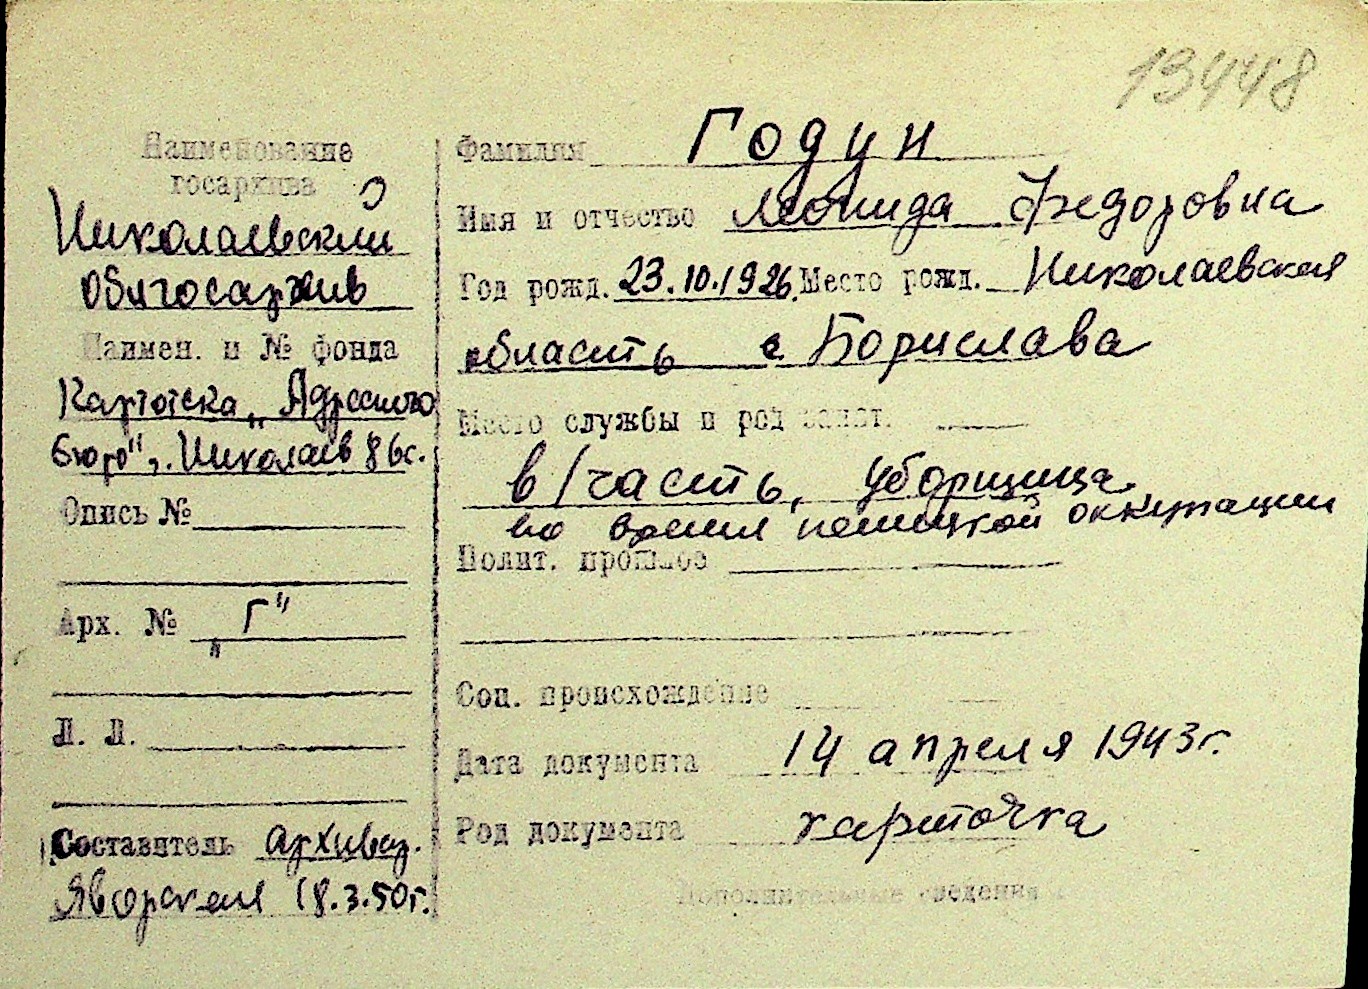 13448
Наименование
госархива
Николаевский
облгосархив
Наимен. и № фонда
Картотека „Адресного
бюро",. Николаев 8
Опись №
Арх. № „Г"
Л. Л.
Составитель архивар.
Яворская 18.3.50г.
Фамилия Годун
Имя и отчество Леонида Федоровна
Год рожд. 23.10.1926. Место рожд. Николаевская
область с Борислава
Место службы и род занят.
в/часть, уборщица
во время немецкой оккупации
Полит. прошлое
Соц. происхождение
Дата документа 14 апреля 1943г.
Род документа карточка
Дополнительные сведения